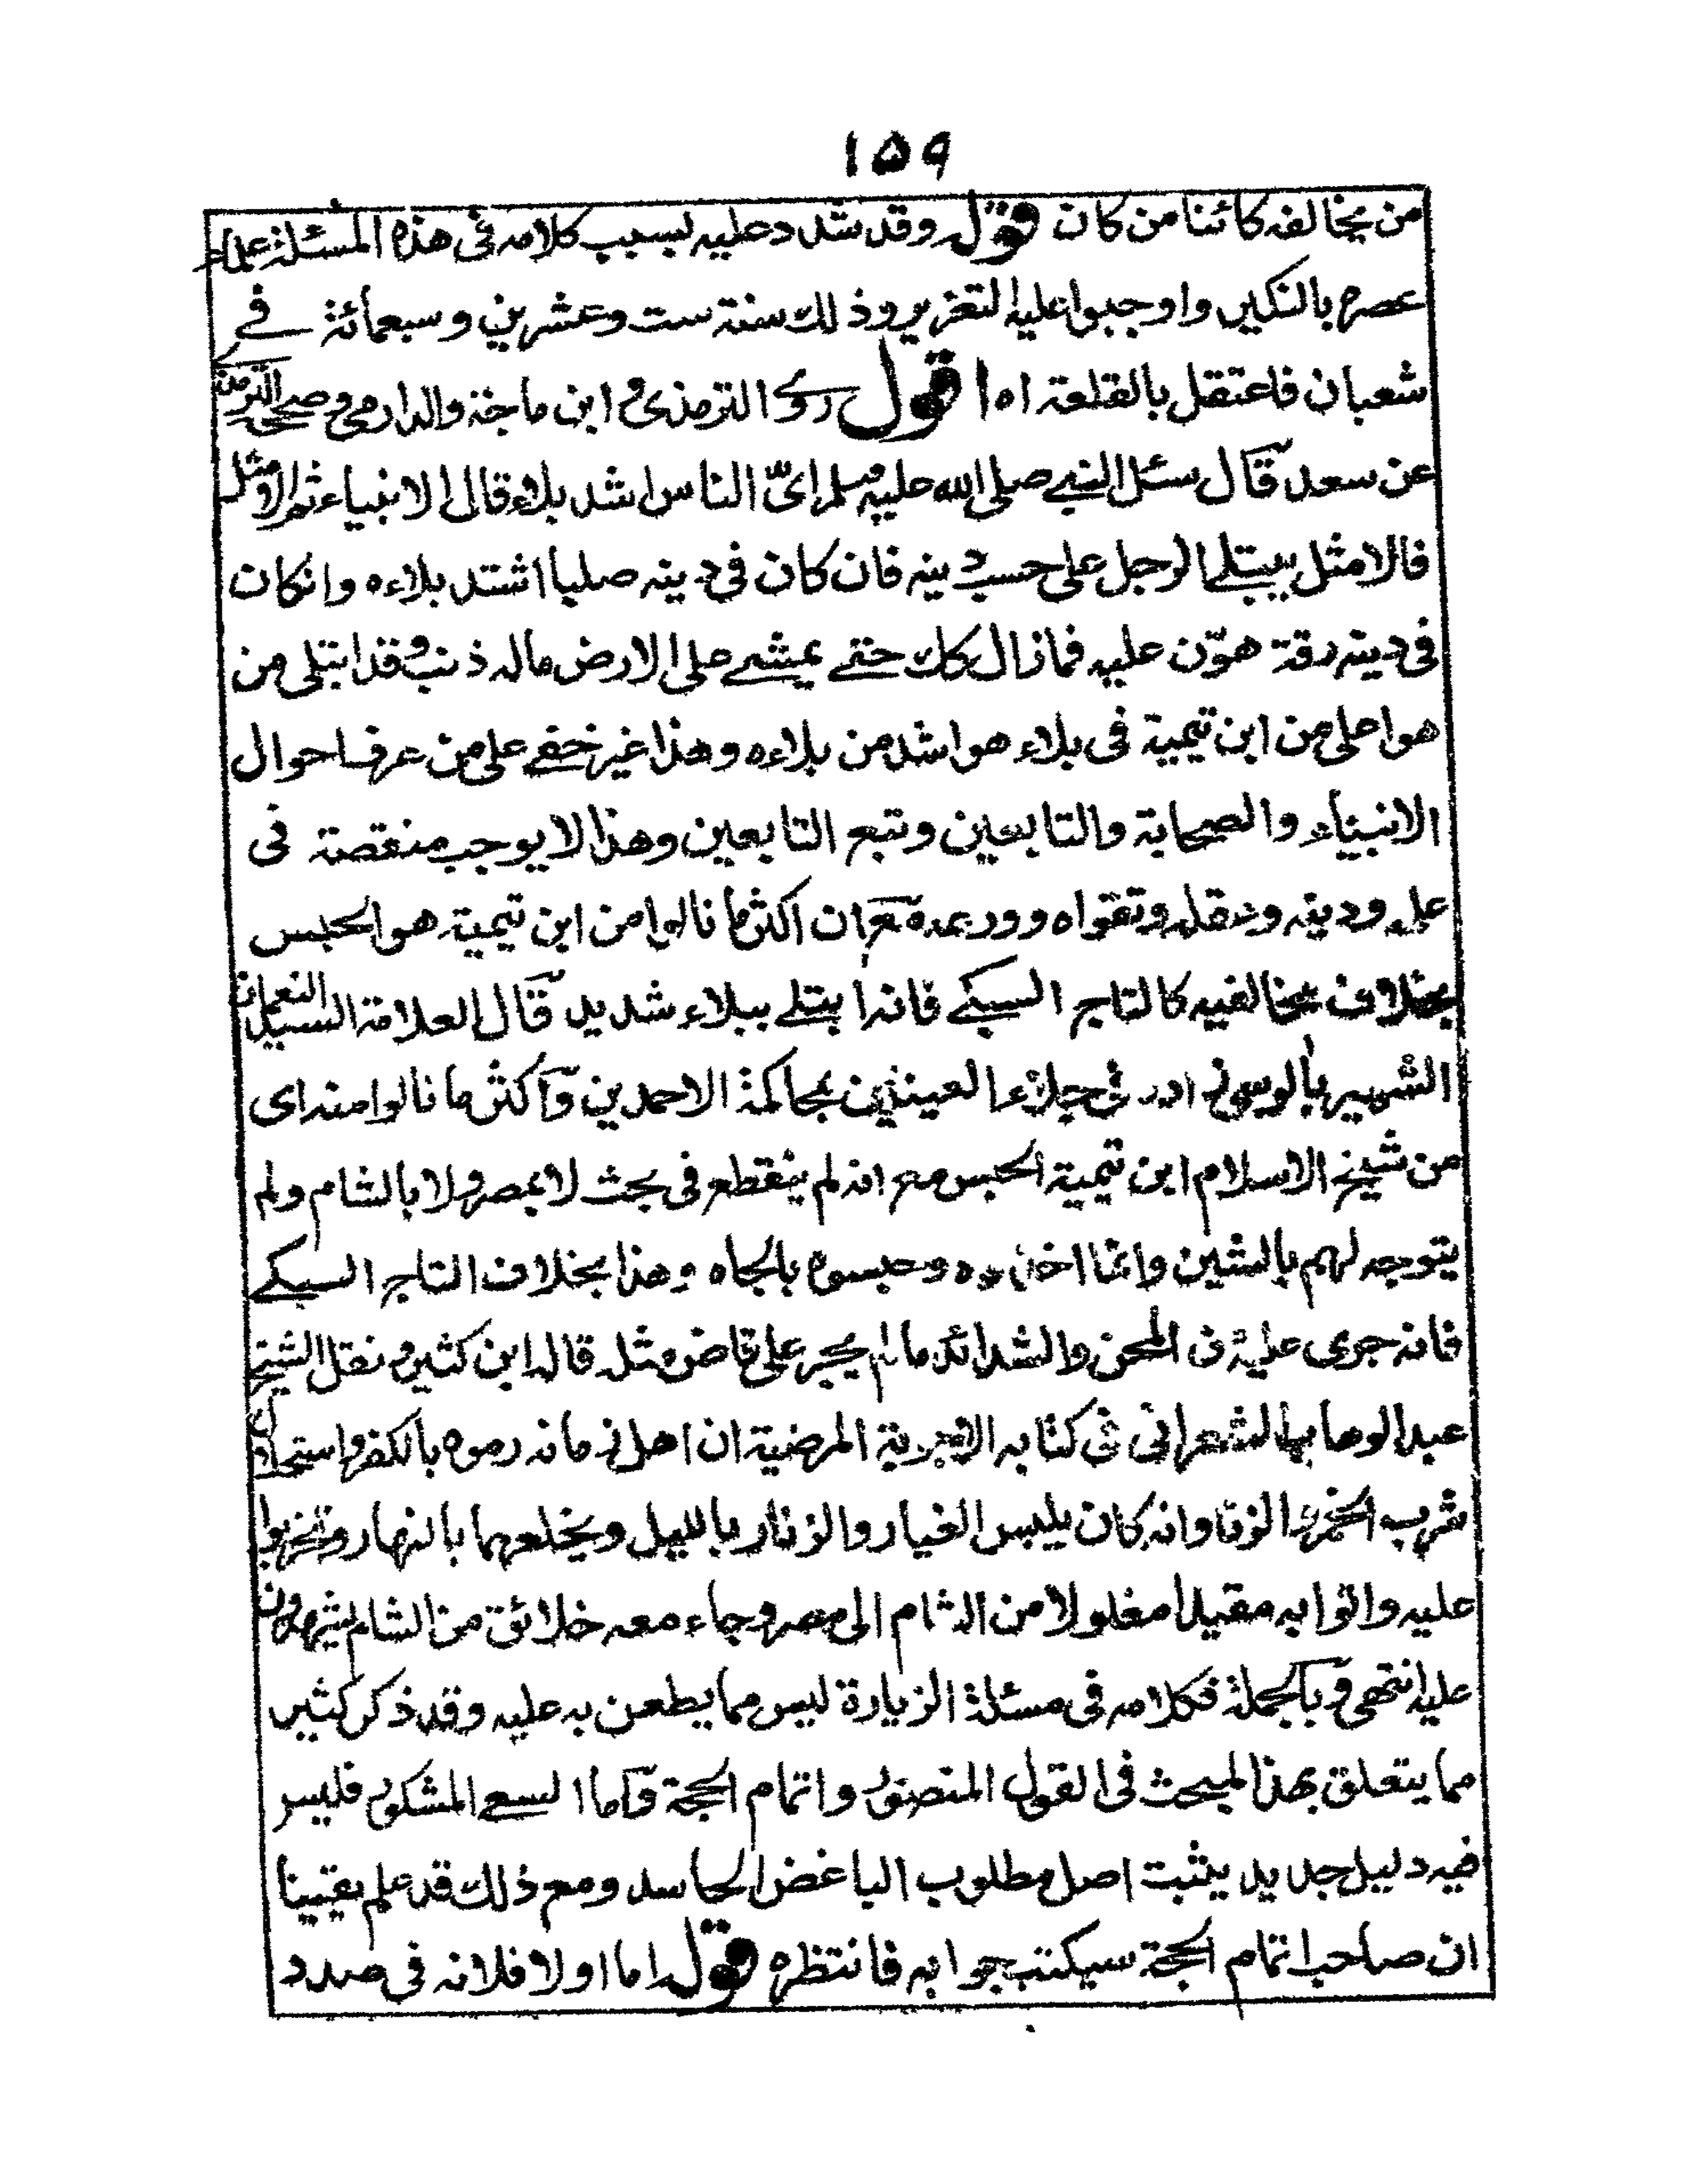 ١٥٩
من يخالفه كائنا من كان قوله وقد شدد عليه بسبب كلامه فى هذه المسئلة علماء
عصره بالنكير واوجبوا عليه التعزير وذلك سنة ست وعشرين وسبعمائة فے
شعبان فاعتقل بالقلعة اه اقول روے الترمذى وابن ماجة والدارمى وصححه الترمذى
عن سعد قال سئل النبے صلى الله عليه وسلم اىّ الناس اشد بلاء قال الانبياء ثم الامثل
فالامثل يبتلے الرجل على حسب دينه فان كان فى دينه صلبا اشتد بلاءه وانكان
فى دينه رقة هوّن عليه فمازال كك حتے يمشے على الارض ماله ذنب وقد ابتلى من
هو اعلى من ابن تيمية فى بلاء هو اشد من بلاءه وهذا غير خفے على من عرف احوال
الانبياء والصحابة والتابعين وتبع التابعين وهذا لا يوجب منقصة فى
علمه ودينه وعقله وتقواه وورعه مع ان اكثر ما نالوا من ابن تيمية هو الحبس
بخلاف مخالفيه كالتاج السبكے فانه ابتلے ببلاء شديد قال العلامة السيد النعمان
الشهير بالوسى زاده فى جلاء العينين بمحاكمة الاحمدين وأكثر ما نالوا منه اى
من شيخ الاسلام ابن تيمية الحبس مع انه لم ينقطع فى بحث لا بمصر ولا بالشام ولم
يتوجه لهم بالشين وانما اخذوه وحبسوه بالجاه وهذا بخلاف التاج السبكے
فانه جرى عليه من المحن والشدائد ما لم يجر على قاض مثله قاله ابن كثير ونقل الشيخ
عبد الوهاب الشعرانى فى كتابه الاجوبة المرضية ان اهل زمانه رموه بالكفر واستحلال
شرب الخمر والزنا وانه كان يلبس الغيار والزنار بالليل ويخلعهما بالنهار وتحزبوا
عليه واتوا به مقيدا مغلولا من الشام الى مصر وجاء معه خلائق من الشام يشهدون
عليه انتهى وبالجملة فكلامه فى مسئلة الزيارة ليس مما يطعن به عليه وقد ذكر كثير
مما يتعلق بهذا المبحث فى القول المنصور واتمام الحجة وأما السعے المشكور فليس
فيه دليل جديد يثبت اصل مطلوب الباغض الحاسد ومع ذلك قد علم يقينا
ان صاحب اتمام الحجة سيكتب جوابه فانتظره قوله اما اولا فلانه فى صدد